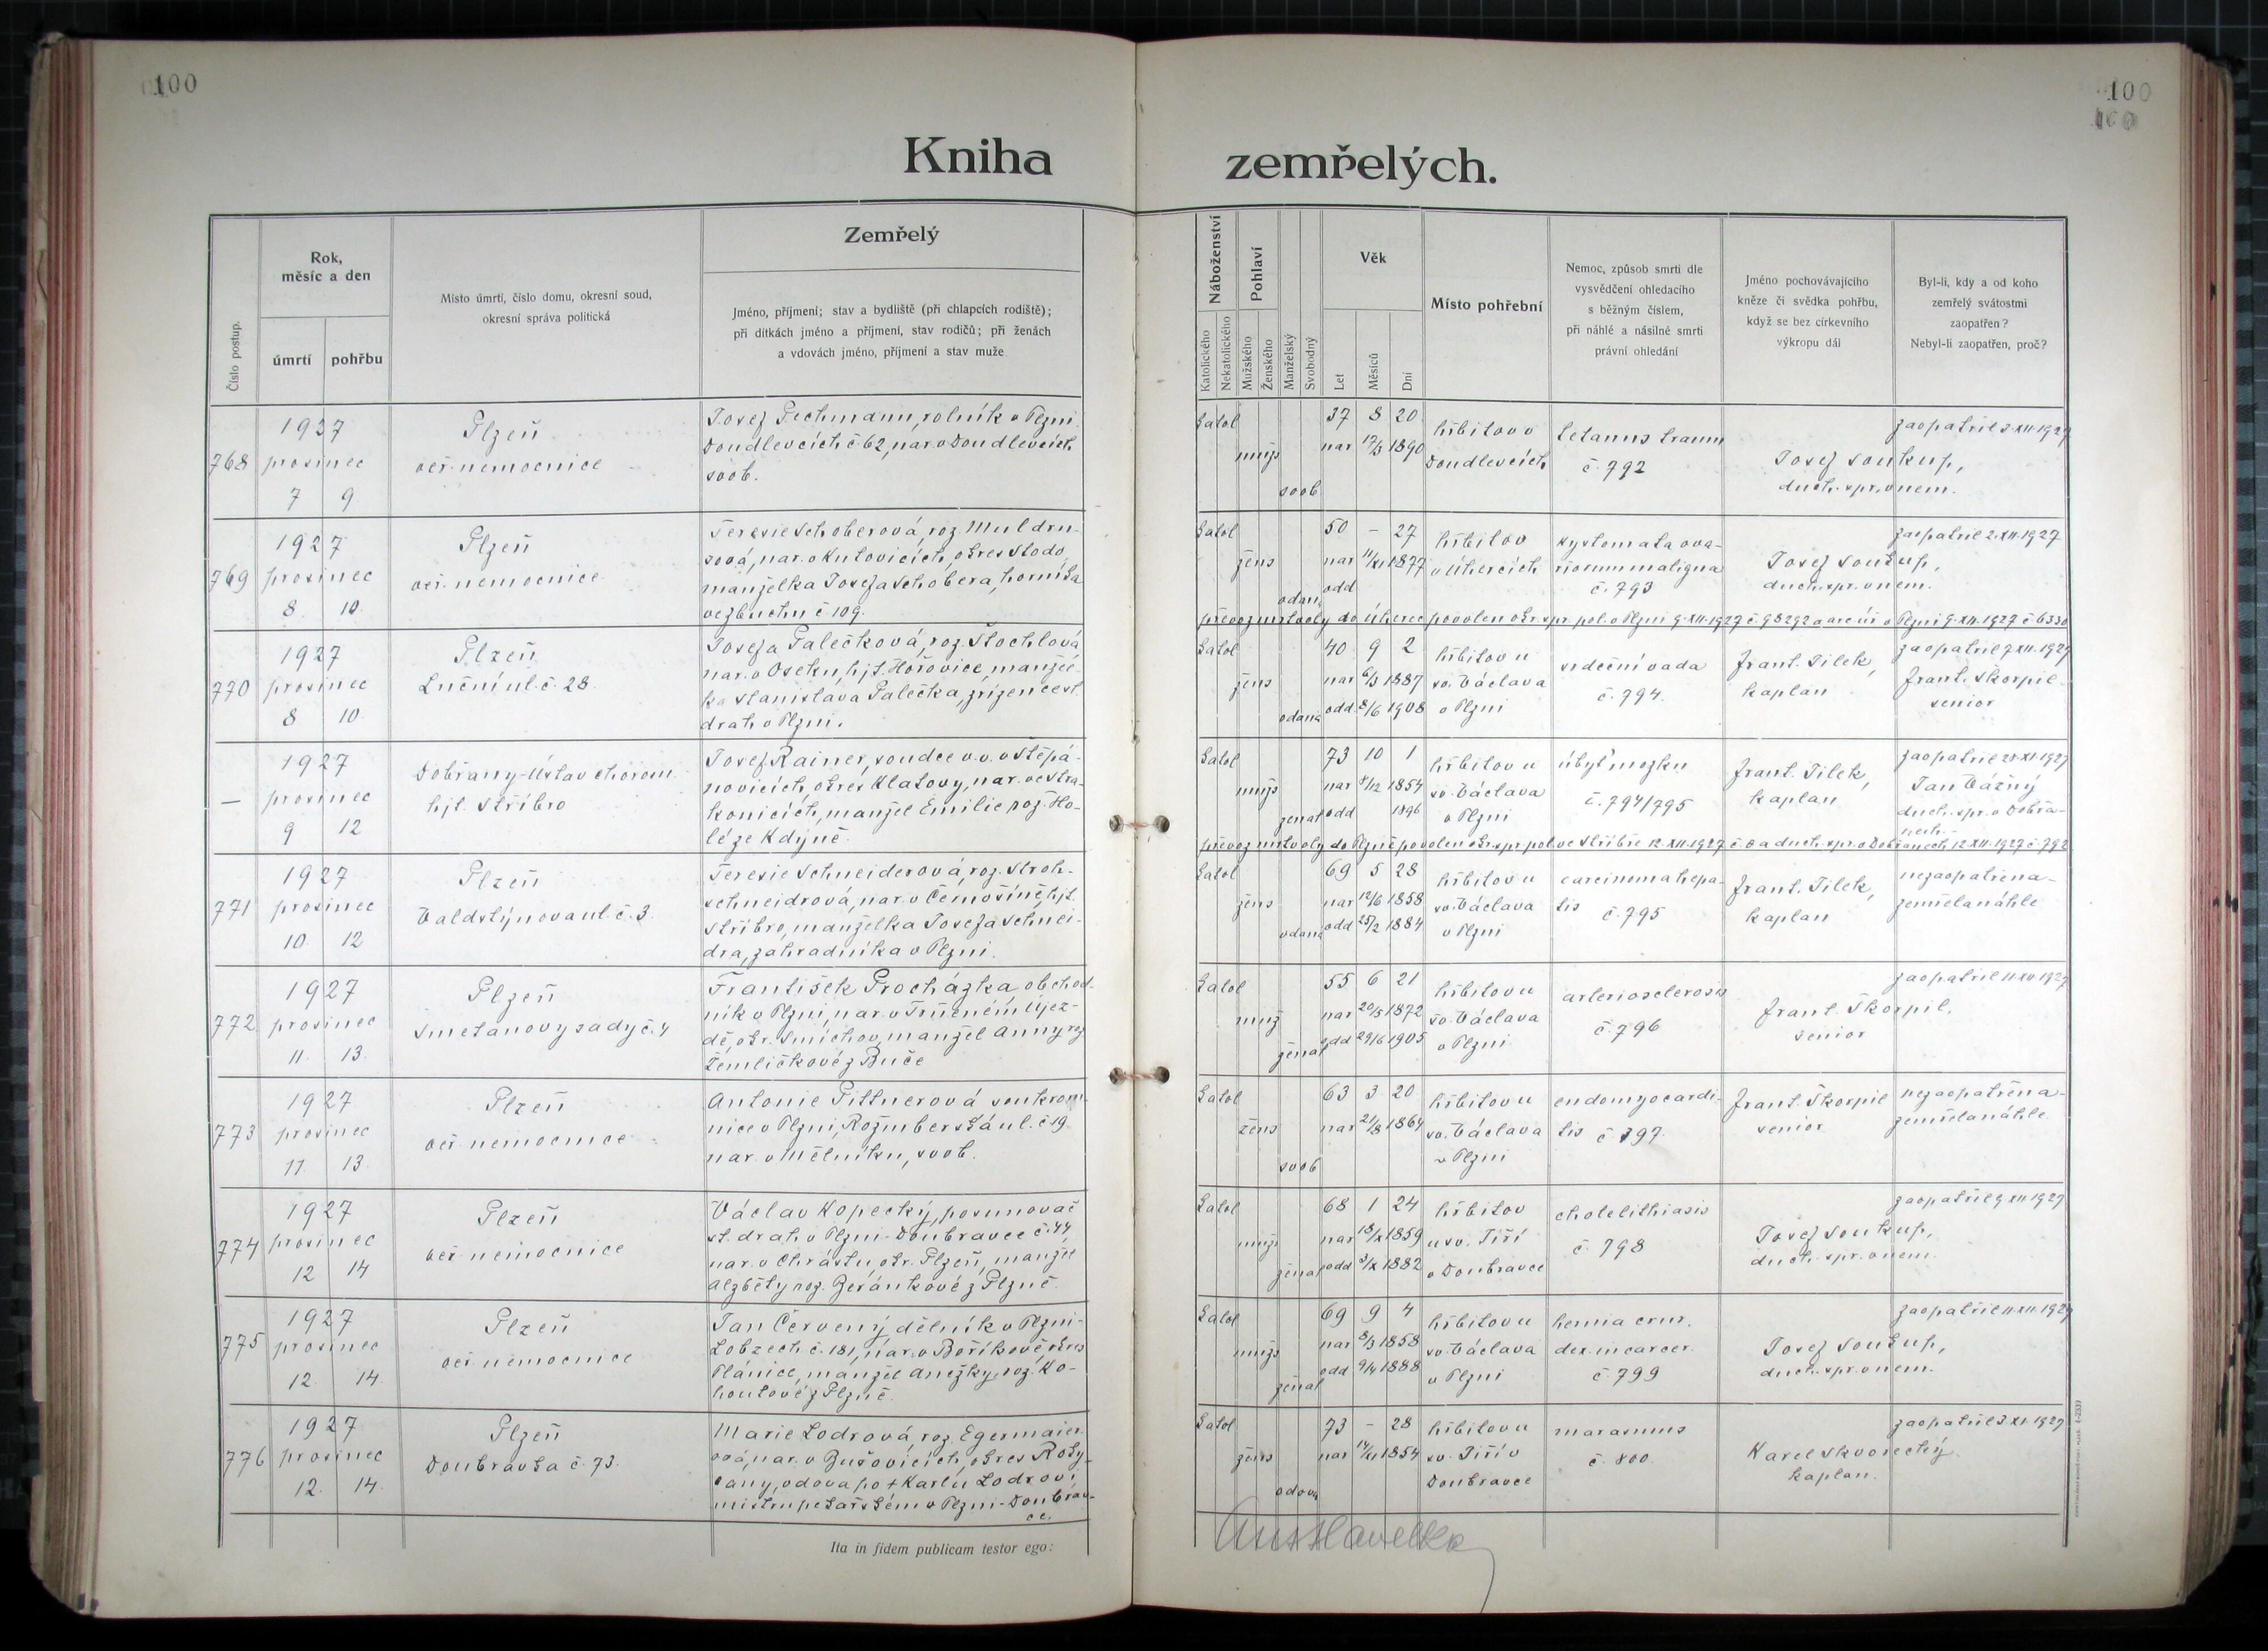 100
100
100
Kniha
zemřelých.
Číslo postup.
Rok,
měsíc a den
úmrtí
pohřbu
Místo úmrtí, číslo domu, okresní soud,
okresní správa politická
Zemřelý
Jméno, příjmení; stav a bydliště (při chlapcích rodiště);
při dítkách jméno a příjmení, stav rodičů; při ženách
a vdovách jméno, příjmení a stav muže
Náboženství
Katolického
Nekatolického
Pohlaví
Mužského
Ženského
Manželský
Svobodný
Věk
Let
Měsíců
Dní
Místo pohřební
Nemoc, způsob smrti dle
vysvědčení ohledacího
s běžným číslem,
při náhlé a násilné smrti
právní ohledání
Jméno pochovávajícího
kněze či svědka pohřbu,
když se bez církevního
výkropu dál
Byl-li, kdy a od koho
zemřelý svátostmi
zaopatřen?
Nebyl-li zaopatřen, proč?
768
1927
prosinec
7 9
Plzeň
veř. nemocnice
Josef Pechmann, rolník v Plzni
Doudlevcích č. 62, nar. v Doudlevcích,
svob.
katol
muž
svob
37 8 20
nar 17/3 1890
hřbitov v
Doudlevcích
tetanus traum
č. 792
Josef Soukup,
duch. spr. v nem.
zaopatřil 3.XII.1927
769
1927
prosinec
8. 10.
Plzeň
veř. nemocnice
Terezie Schoberová, roz. Muldru-
sová, nar. v Kutovicích, okres Stodo,
manželka Josefa Schobera, horníka
ve Zbuchu č. 109.
katol
žens
vdan.
50 – 27
nar 11/XI 1877
odd
hřbitov
v Úhercích
kystomata ova-
riorum maligna
č. 793
Josef Soukup,
duch. spr. v nem.
zaopatřil 2.XII.1927
převoz mrtvoly do Úherec povolen okr. spr. pol. v Plzni 9.XII.1927 č. 98292 a arc. úř. v Plzni 9.XII.1927 č. 6330
770
1927
prosinec
8 10
Plzeň
Luční ul. č. 28.
Josefa Palečková, roz. Štochlová
nar. v Oseku, hjt. Hořovice, manžel-
ka Stanislava Palečka, zřízence st.
drah v Plzni.
katol
žens
vdaná
40 9 2
nar 6/3 1887
odd. 8/6 1908
hřbitov u
sv. Václava
v Plzni
srdeční vada
č. 794.
Frant. Jílek,
kaplan
zaopatřil 7.XII.1927
Frant. Škorpil
senior
–
1927
prosinec
9 12
Dobřany-Ústav chorom.
hjt. Stříbro
Josef Rainer, soudce v. v. v Štěpá-
novicích, okres Klatovy, nar. ve Stra-
konicích, manžel Emilie roz. Ho-
lé ze Kdyně.
katol
muž
ženat
73 10 1
nar 8/12 1854
odd 1896
hřbitov u
sv. Václava
v Plzni
úbyť mozku
č. 794/795
Frant. Jílek,
kaplan
zaopatřil 28.XI.1927
Jan Vážný
duch. spr. v Dobřa-
nech.
převoz mrtvoly do Plzně povolen okr. spr. pol. ve Stříbře 12.XII.1927 č. 0 a duch. spr. v Dobřanech 12.XII.1927 č. 792
771
1927
prosinec
10. 12
Plzeň
Valdštýnova ul. č. 3.
Terezie Schneiderová, roz. Stroh-
schneidrová, nar. v Černošíně, hjt.
Stříbro, manželka Josefa Schnei-
dra, zahradníka v Plzni.
katol
žens
vdaná
69 5 28
nar 12/6 1858
odd 25/2 1884
hřbitov u
sv. Václava
v Plzni
carcinoma hepa-
tis č. 795
Frant. Jílek,
kaplan
nezaopatřena-
zemřela náhle
772
1927
prosinec
11. 13.
Plzeň
Smetanovy sady č. 4
František Procházka, obchod.
ník v Plzni, nar. v Trněném Újez-
dě, okr. Smíchov, manžel Anny roz
Žemličkové z Buče
katol
muž
ženat
55 6 21
nar 20/5 1872
odd 29/6 1905
hřbitov u
sv. Václava
v Plzni
arteriosclerosis
č. 796
Frant. Škorpil,
senior
zaopatřil 11.XII.1927
773
1927
prosinec
11. 13.
Plzeň
veř. nemocnice
Antonie Pittnerová soukrom
nice v Plzni, Rožmberská ul. č. 19.
nar. v Mělníku, svob.
katol
žens
svob
63 3 20
nar 21/8 1864
hřbitov u
sv. Václava
v Plzni
endomyocardi-
tis č 797.
Frant. Škorpil
senior
nezaopatřena-
zemřela náhle
774
1927
prosinec
12 14
Plzeň
veř. nemocnice
Václav Kopecký, posunovač
st. drah v Plzni-Doubravce č. 44,
nar. v Chrástu, okr. Plzeň, manžel
Alžběty roz. Beránkové z Plzně.
katol
muž
ženat
68 1 24
nar 18/X 1859
odd 3/X 1882
hřbitov
u sv. Jiří
v Doubravce
cholelithiasis
č. 798
Josef Soukup,
duch. spr. v nem.
zaopatřil 9.XII.1927
775
1927
prosinec
12. 14.
Plzeň
veř. nemocnice
Jan Červený, dělník v Plzni-
Lobzech č. 181, nar. v Boříkově, okres
Plánice, manžel Anežky, roz. Ko-
houtové z Plzně.
katol
muž
ženat
69 9 4
nar 8/3 1858
odd 9/4 1888
hřbitov u
sv. Václava
v Plzni
hernia crur.
dex. incarcer.
č. 799
Josef Soukup,
duch. spr. v nem.
zaopatřil 11.XII.1927
776
1927
prosinec
12. 14.
Plzeň
Doubravka č. 73.
Marie Lodrová, roz. Egermaier-
ová, nar. v Bušovicích, okres Roky-
cany, vdova po † Karlu Lodrovi
mistru pekařském v Plzni-Doubrav-
ce.
katol
žens
vdova
73 – 28
nar 14/XI 1854
hřbitov u
sv. Jiří v
Doubravce
marasmus
č. 800.
Karel Skvorecký
kaplan.
zaopatřil 3.XI.1927
Ita in fidem publicam testor ego:
Ant Havelka